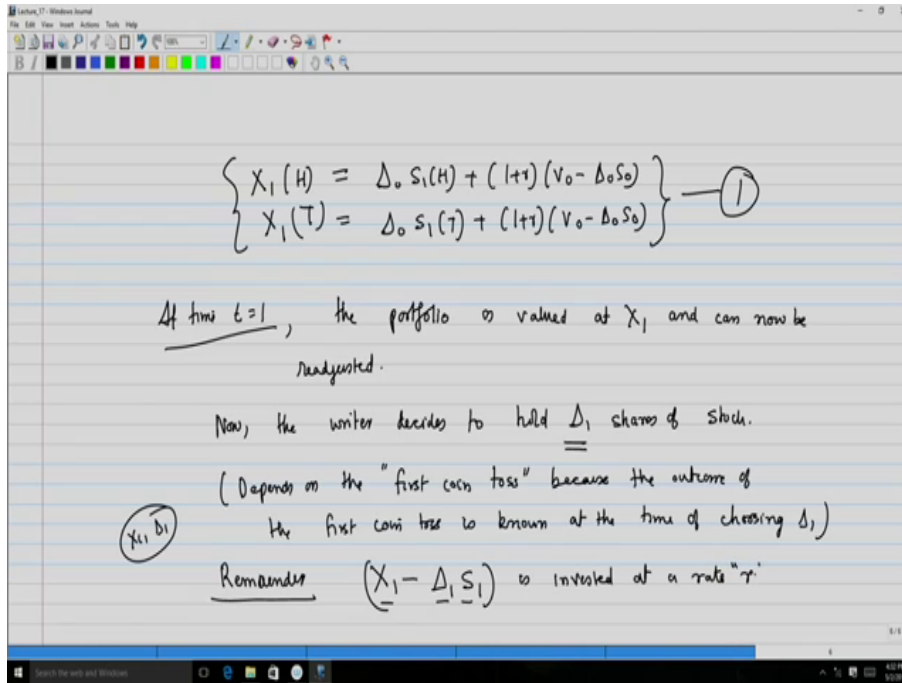 Lecture_17 - Windows Journal
File Edit View Insert Actions Tools Help
B I
X₁(H) = Δ₀ S₁(H) + (1+r)(V₀ - Δ₀S₀)
X₁(T) = Δ₀ S₁(T) + (1+r)(V₀ - Δ₀S₀)
1
At time t=1, the portfolio is valued at X₁ and can now be
readjusted.
Now, the writer decides to hold Δ₁ shares of stock.
(Depends on the "first coin toss" because the outcome of
the first coin toss is known at the time of choosing Δ₁)
X₁, Δ₁
Remainder (X₁ - Δ₁S₁) is invested at a rate "r".
Search the web and Windows